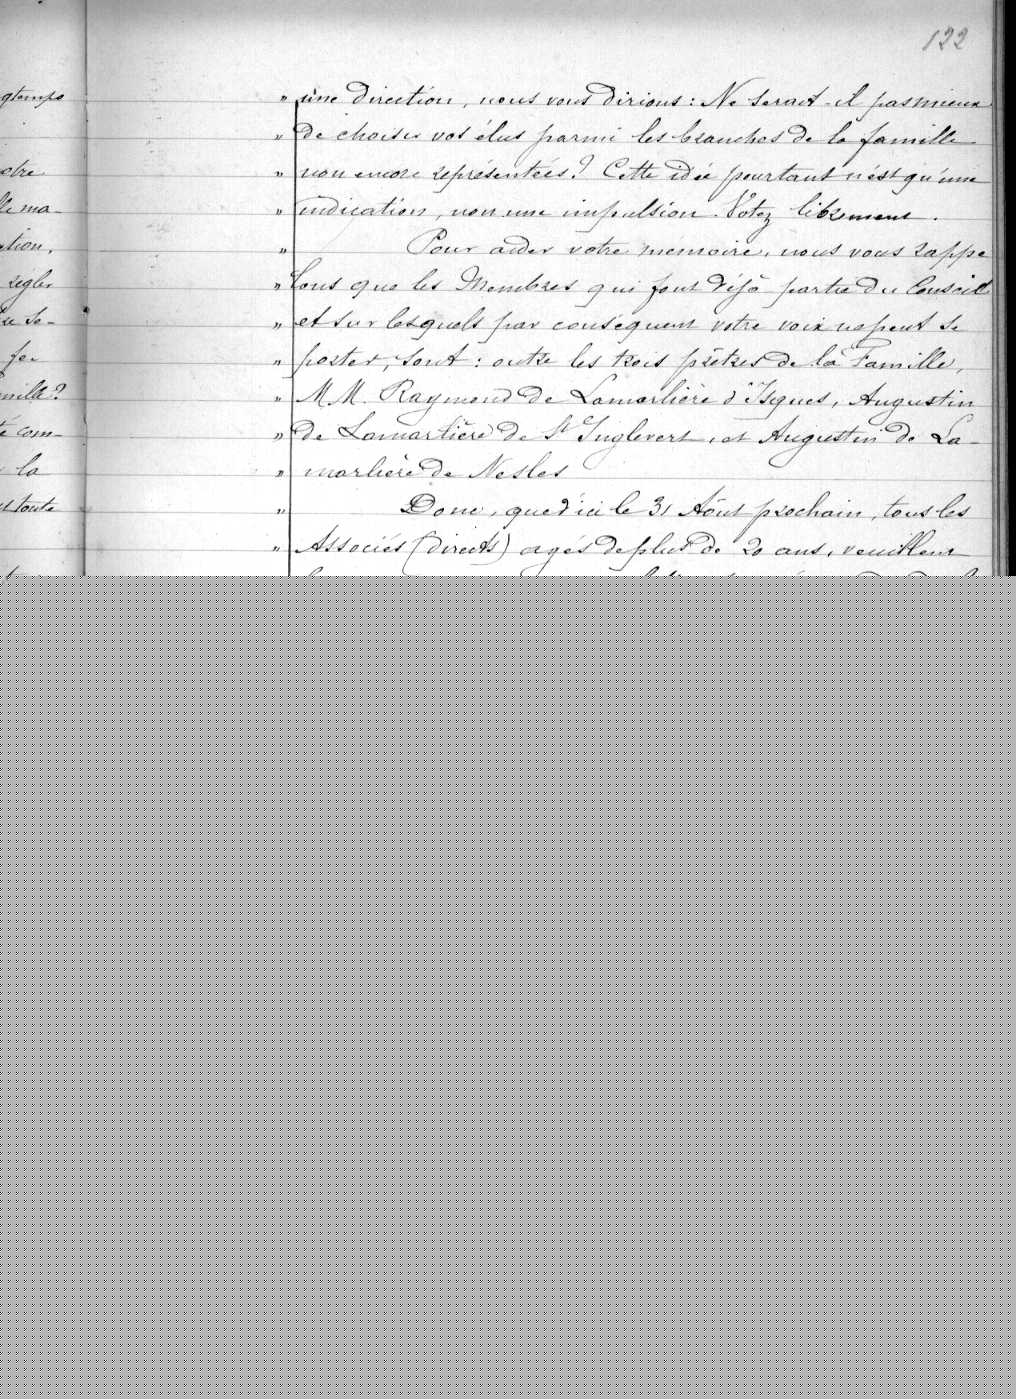 122
" une direction, nous vous dirions : Ne serait-il pas mieux
" de choisir vos élus parmi les branches de la famille
" non encore représentées ? Cette idée pourtant n'est qu'une
" indication, non une impulsion. Votez librement.
" Pour aider votre memoire, nous vous rappe
" lons que les Membres qui font déjà partie du Conseil
" et sur lesquels par conséquent votre voix ne peut se
" porter, sont : outre les trois prêtres de la Famille,
" M M. Raymond de Lamarlière d'Isques, Augustin
" de Lamartière de St Inglevert, et Augustin de La-
" marlière de Nesles
" Donc, que d'ici le 31 Août prochain, tous les
" Associés (directs) agés de plus de 20 ans, veuillent
gtemps
otre
lle ma-
ction,
regler
se-
mille ?
é com-
la
toute